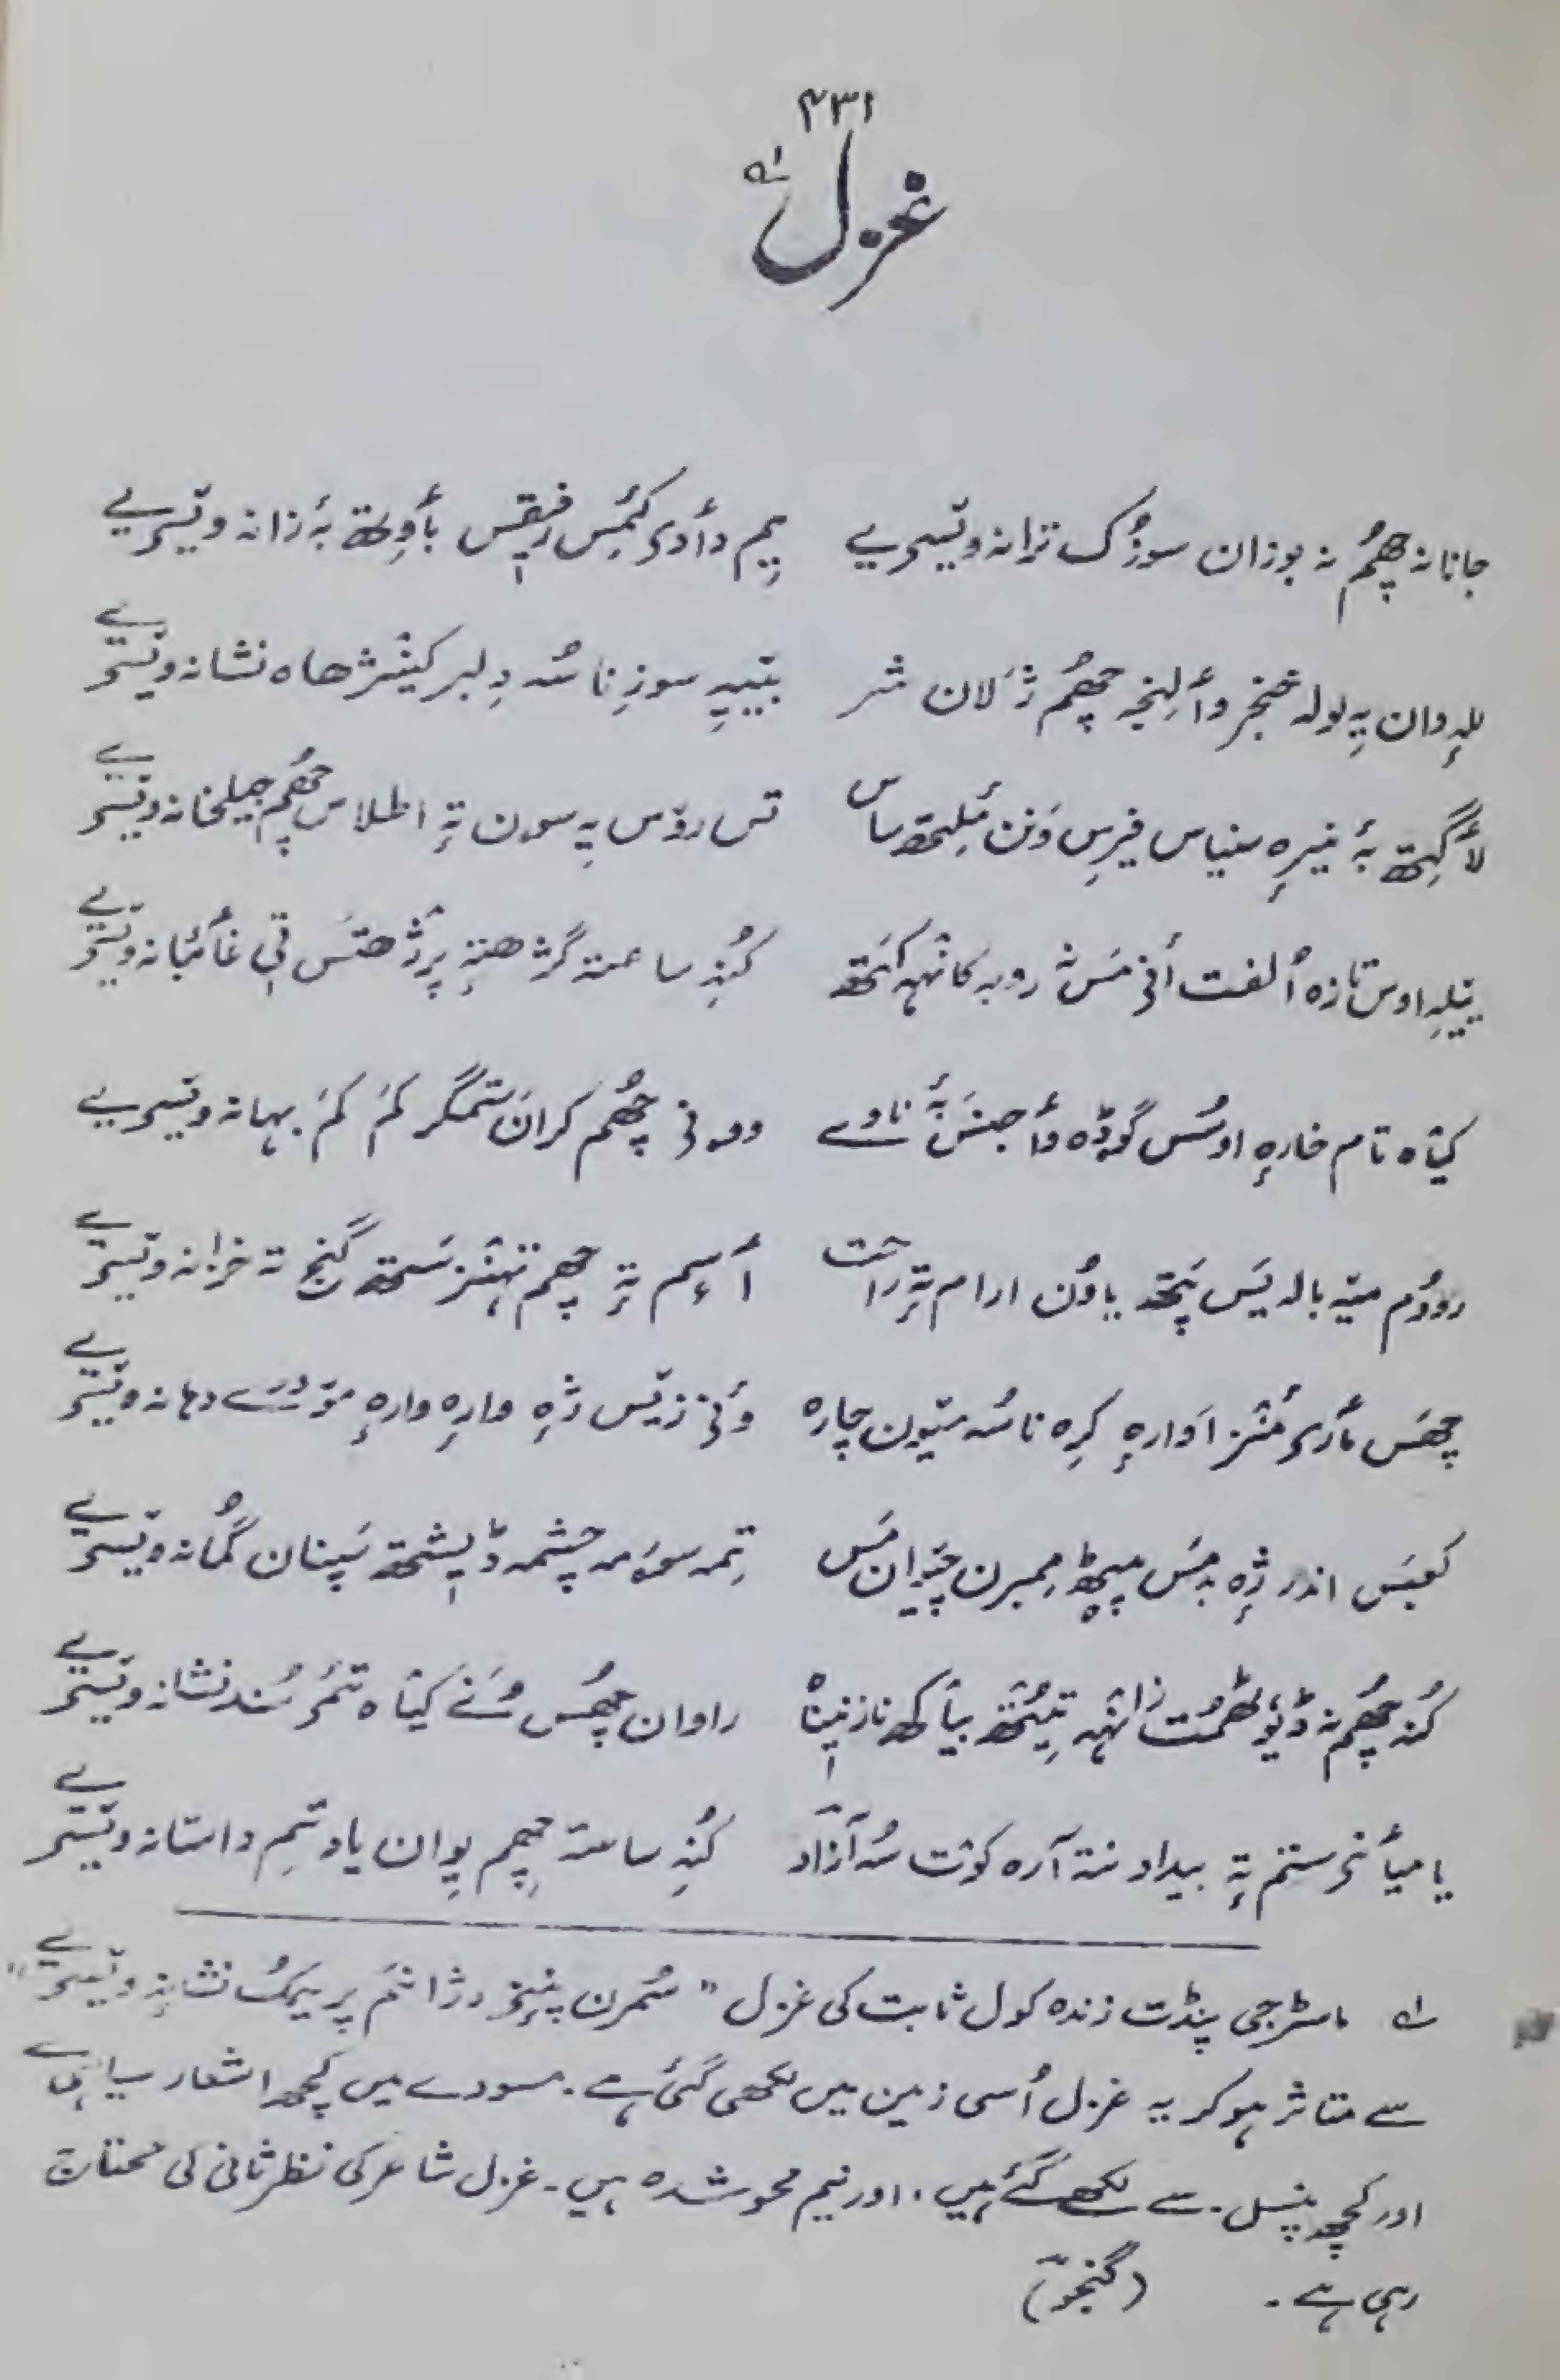 ۴۳۱
غزل
جانانہ چھُم نہ بوزان سوزُک ترانہ ویٚسیے یِم دٲدؠ کٔمِس رفیٖقس بٲوِتھ بہٕ زانہ ویٚسیے
للہِ وان یہِ لولہ خنجر وٲلِنجہ چھُم ژَلان شر بیٚیہِ سوزِنا سُہ دِلبر کینٛژھاہ نشانہ ویٚسیے
لٲگِتھ بہٕ نیرہٕ سنیاس فیرس وَنن مٔلِتھ ساس تس روٚس یہِ سون تہٕ اطلاس چھُم جیلخانہ ویٚسیے
ییٚلہِ اوس تازہ اُلفت أنۍ مَس نہٕ روبہ کانٛہہ کَتھ کُنہِ ساعتہ گژھتہٕ پرٛژھتَس تی غٲئبانہ ویٚسیے
کیٛاہ تام خارہٕ اوسُس گۄڈہ وٲجنَس بہٕ ناوے وۄنۍ چھُم کران ستمگر کَم کَم بہانہ ویٚسیے
رودُم میٚہ بالہ یَس پَتھ یاوُن ارام تہٕ راحت أسۍم تہٕ چھم تہنٛز سَتھ گنج تہ خزانہ ویٚسیے
چھَس مٲرۍ مٔنٛز آوارہٕ کرِہ نا سُہ میٛون چارہ وٲنۍ زیٚس ژٕہ وارہٕ وارہٕ دہانہ ویٚسیے
کعبَس اندر ژٕہ مَس پیٚٹھ ممبرن چیٚوان مَس تِمہ چشمہ ڈیٖشتھ سَپنان گُمانہ ویٚسیے
کُنہ چھُم نہ ڈیوٗٹھمُت زانٛہہ تیُتھ بیٛاکھ نازنیٖناہ راوان چھُس وُنے کیٛاہ تٔمۍ سُند نشانہ ویٚسیے
یا میٲنۍ ستم تہٕ بیداد نتہ آرہ کوٚت سُہ آزاد کُنہِ ساعتہ چھِم پیوان یاد تٔمۍ داستانہ ویٚسیے
لہ ماسٹر جی پنڈت زندہ کول ثابت کی غزل " سُمرن پننۍ دژٲنم پریمُک نشانہٕ ویٚسیے "
سے متاثر ہو کر یہ غزل اُسی زمین میں لکھی گئی ہے۔ مسودے میں کچھ اشعار سیاہی سے
اور کچھ پنسل سے لکھے گئے ہیں، اور نیم محو شدہ ہیں۔ غزل شاعر کی نظر ثانی کی محتاج
رہی ہے۔ (گنجو)